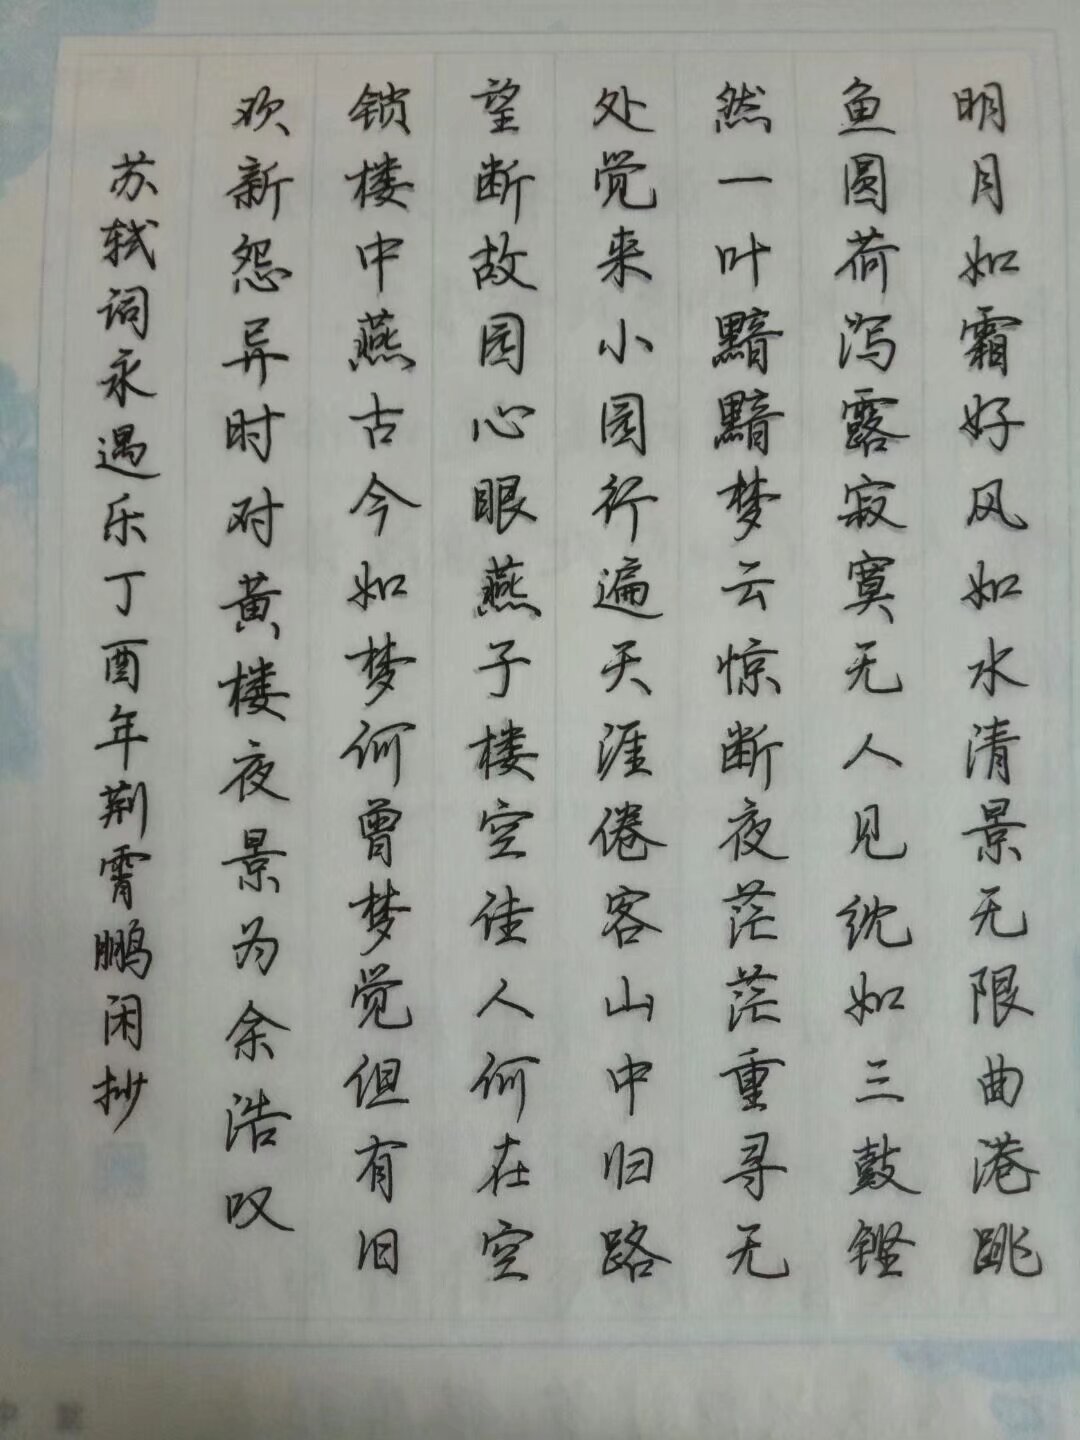 明月如霜好风如水清景无限曲港跳
鱼圆荷泻露寂寞无人见紞如三鼓铿
然一叶黯黯梦云惊断夜茫茫重寻无
处觉来小园行遍天涯倦客山中归路
望断故园心眼燕子楼空佳人何在空
锁楼中燕古今如梦何曾梦觉但有旧
欢新怨异时对黄楼夜景为余浩叹
苏轼词永遇乐丁酉年荆霄鹏闲抄